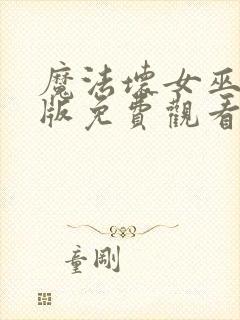 魔法壞女巫
版免費觀看
童剛